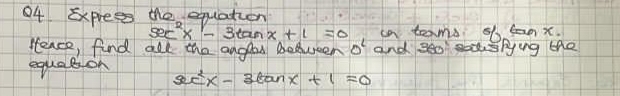 Q4. Express the equation
sec²x - 3tanx + 1 = 0 in terms of tan x.
Hence, find all the angles between 0° and 360° satisfying the
equation
sec²x - 3tanx + 1 = 0